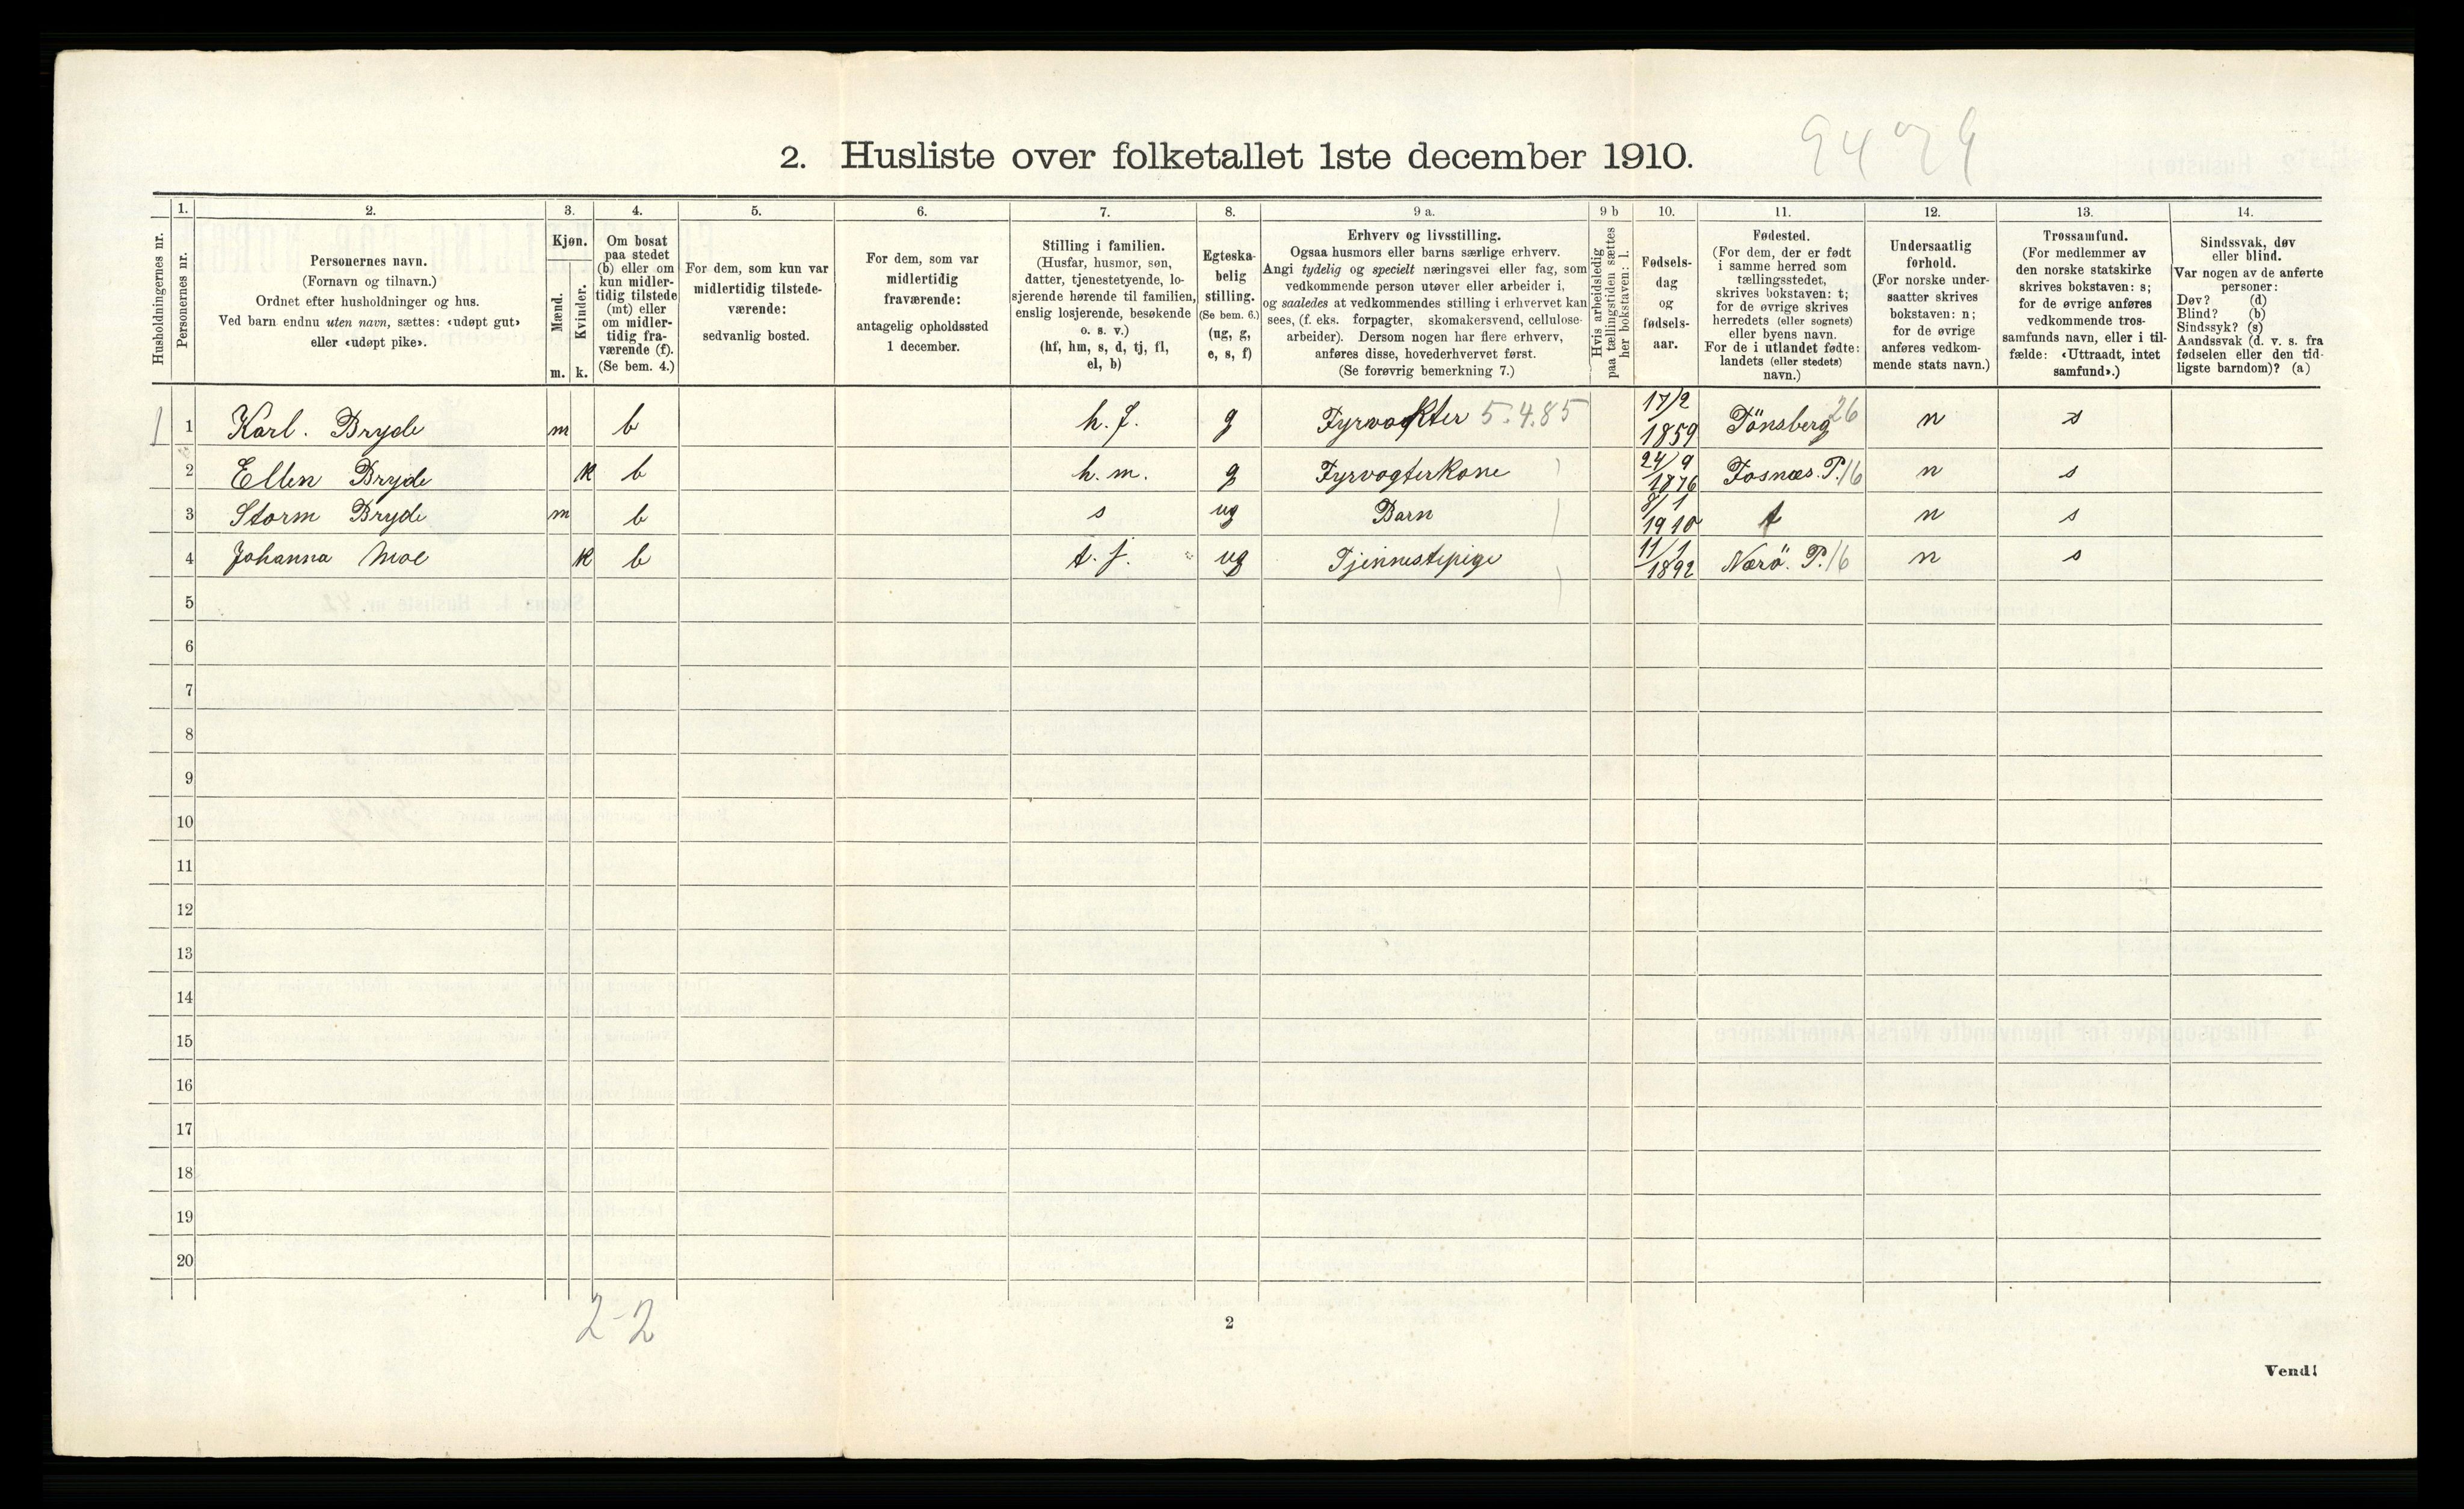 2. Husliste over folketallet 1ste december 1910.
Husholdningernes nr.
1.
Personernes nr.
2.
Personernes navn.
(Fornavn og tilnavn.)
Ordnet efter husholdninger og hus.
Ved barn endnu uten navn, sættes: «udøpt gut»
eller «udøpt pike».
3.
Kjøn.
Mænd.
Kvinder.
m. k.
4.
Om bosat
paa stedet
(b) eller om
kun midler-
tidig tilstede
(mt) eller
om midler-
tidig fra-
værende (f).
(Se bem. 4.)
5.
For dem, som kun var
midlertidig tilstede-
værende:
sedvanlig bosted.
6.
For dem, som var
midlertidig
fraværende:
antagelig opholdssted
1 december.
7.
Stilling i familien.
(Husfar, husmor, søn,
datter, tjenestetyende, lo-
sjerende hørende til familien,
enslig losjerende, besøkende
o. s. v.)
(hf, hm, s, d, tj, fl,
el, b)
8.
Egteska-
belig
stilling.
(Se bem. 6.)
(ug, g,
e, s, f)
9 a.
Erhverv og livsstilling.
Ogsaa husmors eller barns særlige erhverv.
Angi tydelig og specielt næringsvei eller fag, som
vedkommende person utøver eller arbeider i,
og saaledes at vedkommendes stilling i erhvervet kan
sees, (f. eks. forpagter, skomakersvend, cellulose-
arbeider). Dersom nogen har flere erhverv,
anføres disse, hovederhvervet først.
(Se forøvrig bemerkning 7.)
9 b
Hvis arbeidsledig
paa tællingstiden sættes
her bokstaven: l.
10.
Fødsels-
dag
og
fødsels-
aar.
11.
Fødested.
(For dem, der er født
i samme herred som
tællingsstedet,
skrives bokstaven: t;
for de øvrige skrives
herredets (eller sognets)
eller byens navn.
For de i utlandet fødte:
landets (eller stedets)
navn.)
12.
Undersaatlig
forhold.
(For norske under-
saatter skrives
bokstaven: n;
for de øvrige
anføres vedkom-
mende stats navn.)
13.
Trossamfund.
(For medlemmer av
den norske statskirke
skrives bokstaven: s;
for de øvrige anføres
vedkommende tros-
samfunds navn, eller i til-
fælde: «Uttraadt, intet
samfund».)
14.
Sindssvak, døv
eller blind.
Var nogen av de anførte
personer:
Døv? (d)
Blind? (b)
Sindssyk? (s)
Aandssvak (d. v. s. fra
fødselen eller den tid-
ligste barndom)? (a)
1 1 Karl. Bryde m b h. f. g Fyrvogter 5.4.85 17/2 1859 Tönsberg 26 n s
2 Ellen Bryde k b h. m. g Fyrvogterkone 24/9 1876 Fosnæs. P. 16 n s
3 Storm Bryde m b s ug Barn 8/1 1910 t n s
4 Johanna Moe k b t. j. ug Tjennestepige 11/1 1892 Nærö. P. 16 n s
5
6
7
8
9
10
11
12
13
14
15
16
17
18
19
20
2-2
2
Vend!